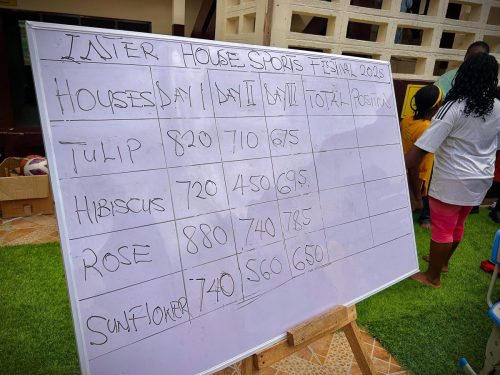 INTER HOUSE SPORTS FESIVAL 2025
HOUSES DAY I DAY II DAY III TOTAL POSITION
TULIP 820 710 675
HIBISCUS 720 450 695
ROSE 880 740 785
SUNFLOWER 740 560 650